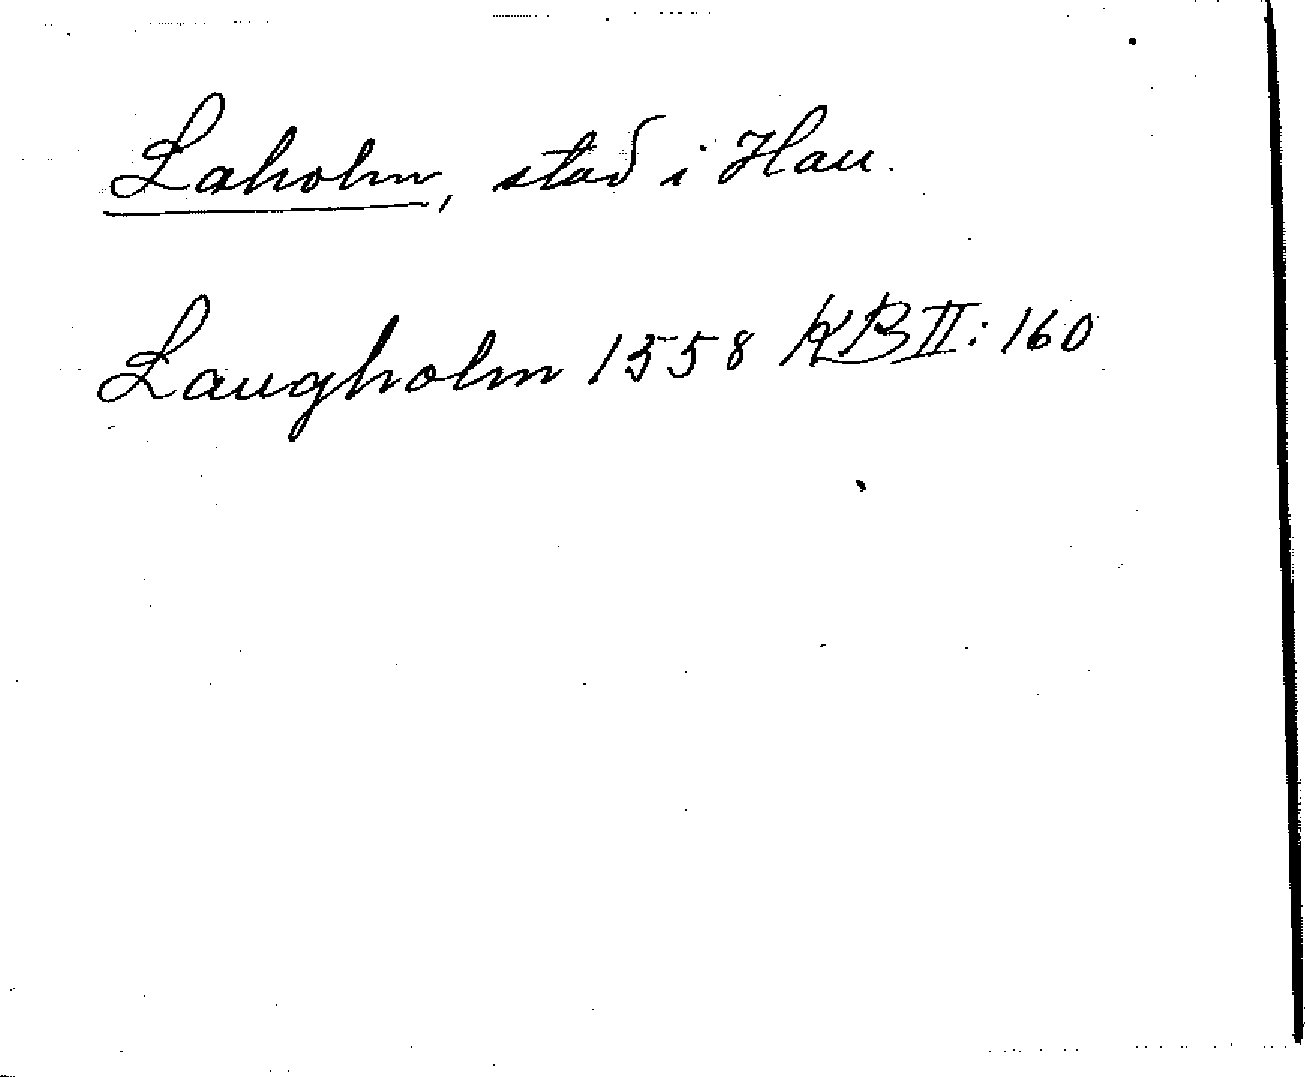 Laholm, stad i Hall.
Laugholm 1558 KB II: 160